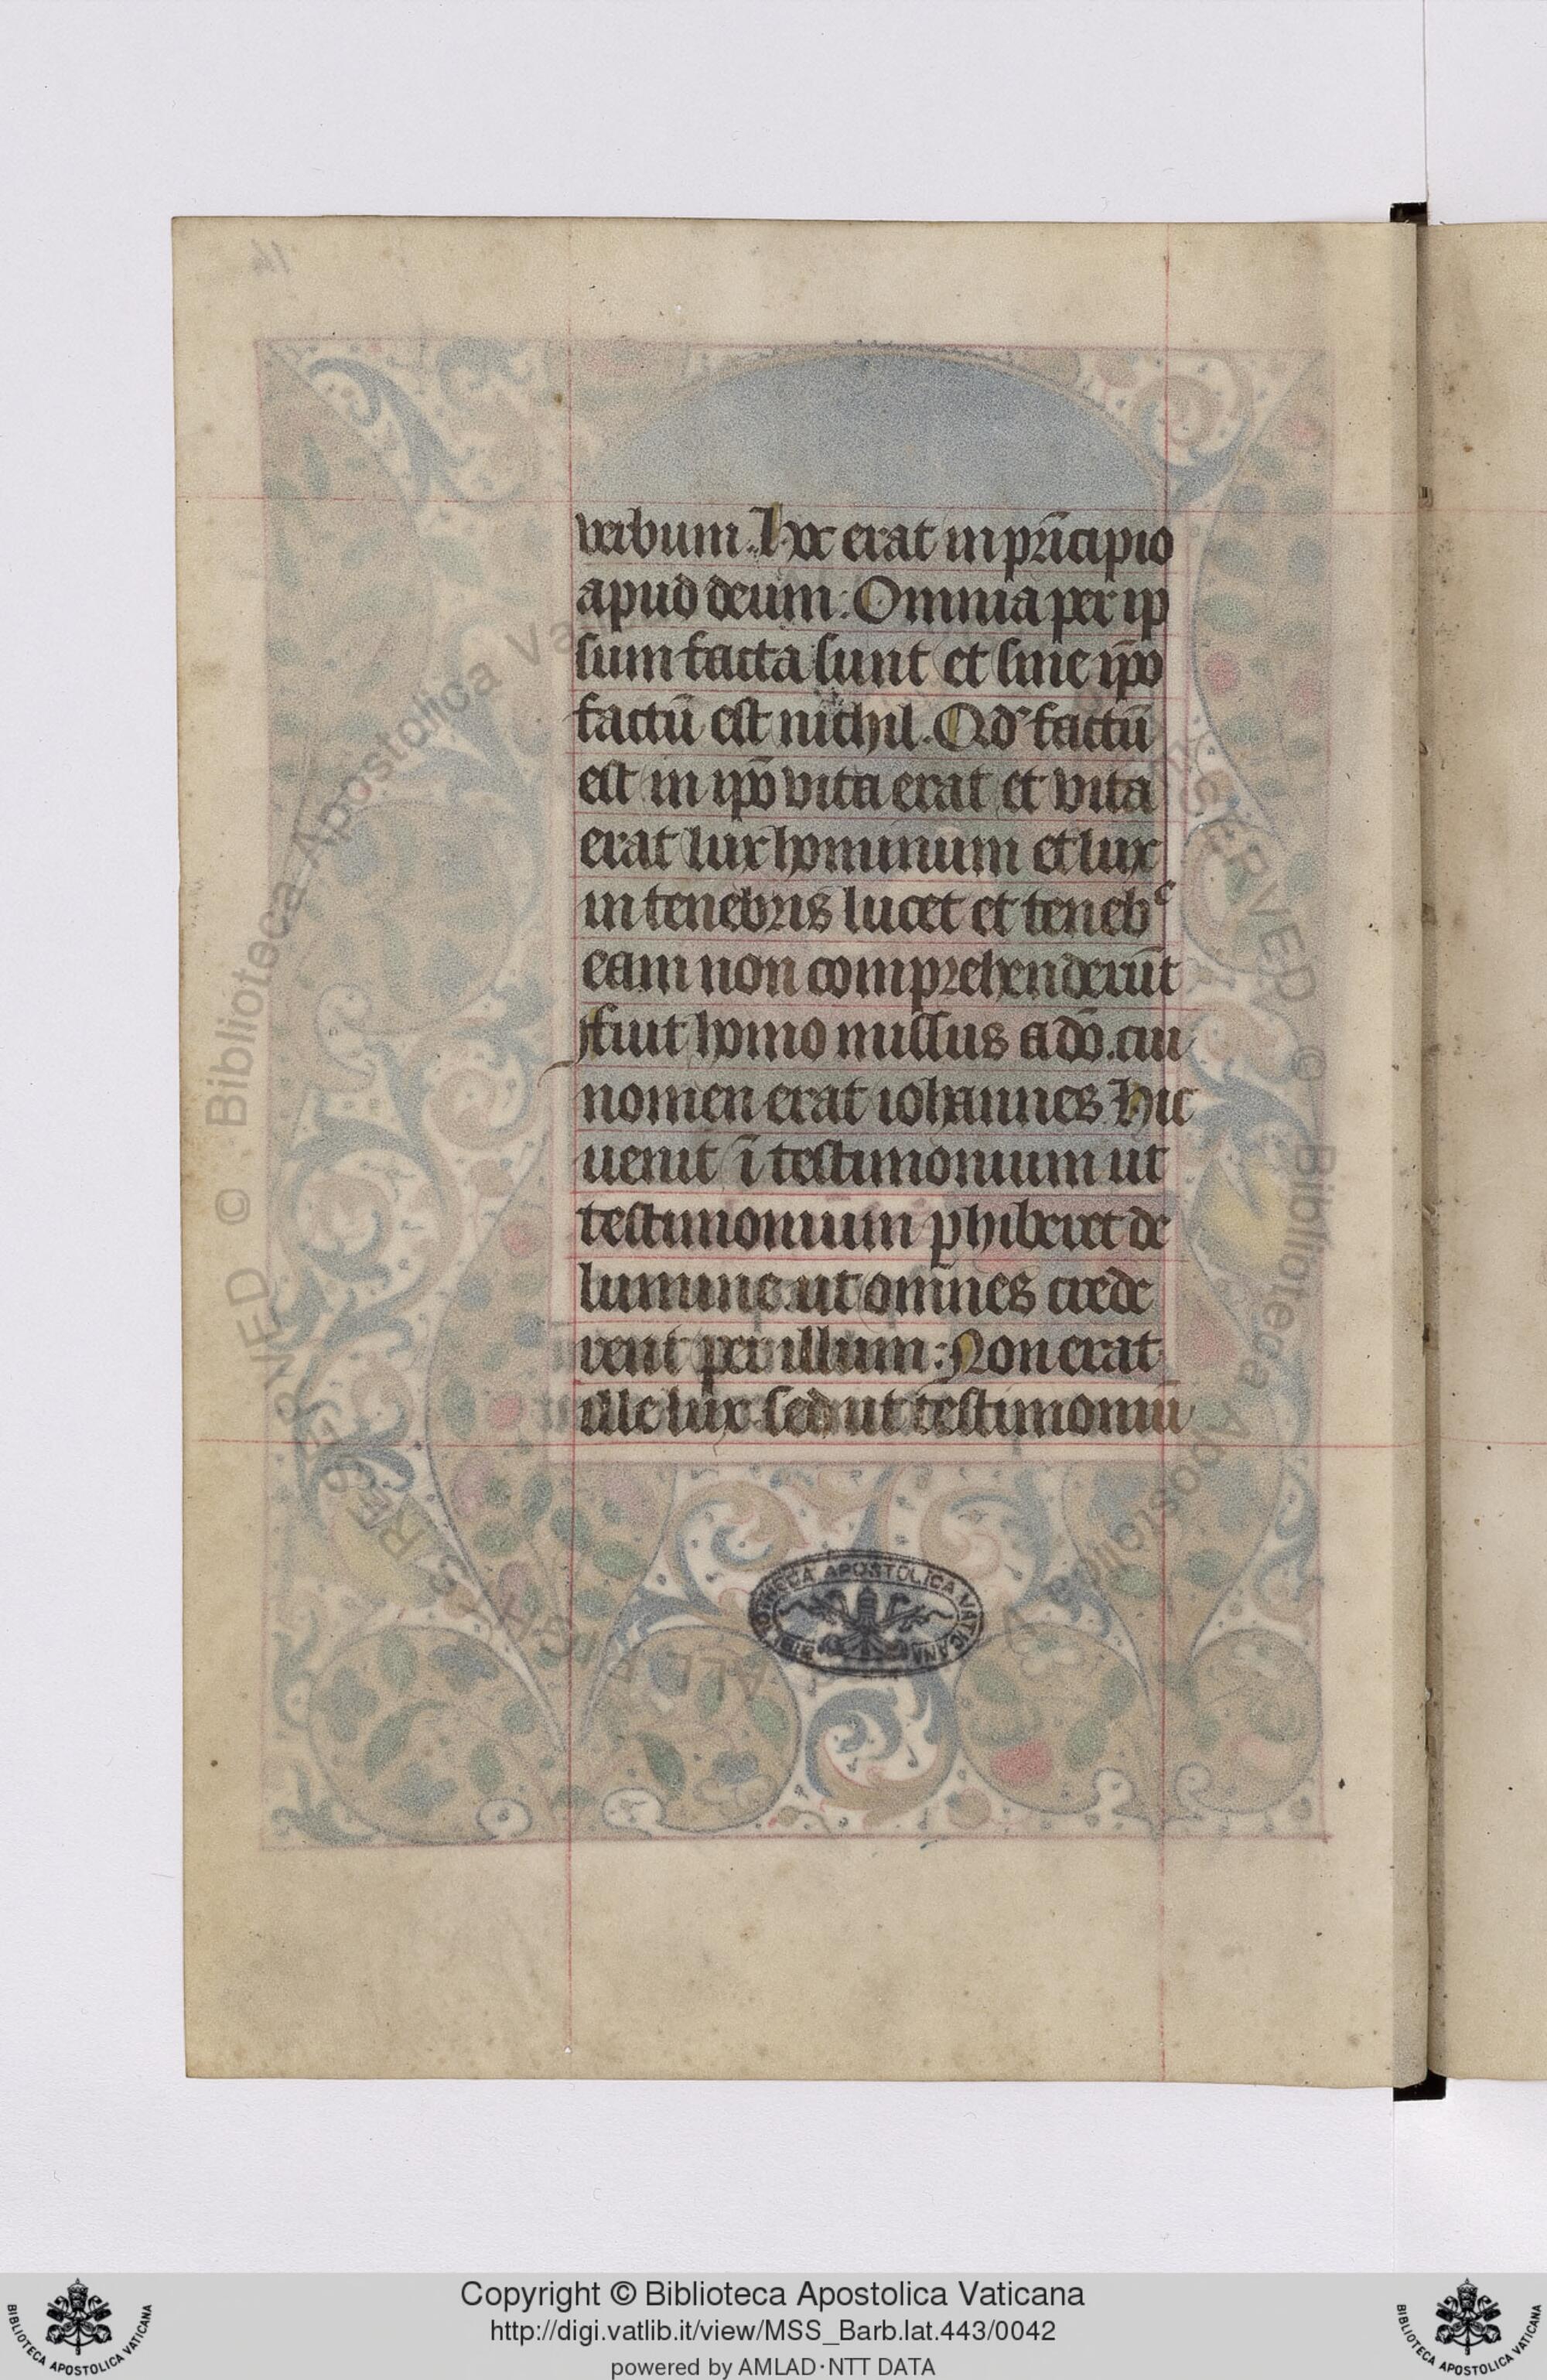 verbum. Hoc erat in pri̅cipio
apud deum: Omnia per ip
sum facta sunt et sine ip̅o
factu̅ est nichil. Qd' factu̅
est in ip̅o vita erat et vita
erat lux hominum et lux
in tenebris lucet et tenebᶜ
eam non comprehenderu̅t
ffuit homo missus a do̅. cui
nomen erat iohannes Hic
uenit i̅ testimonium ut
testimonium ꝑhiberet de
lumine ut omnes crede
rent per illum: Non erat
ille lux sed ut testimoniu̅
BIBLIOTHECA APOSTOLICA VATICANA
© Biblioteca Apostolica Vaticana
ALL RIGHTS RESERVED
Copyright © Biblioteca Apostolica Vaticana
http://digi.vatlib.it/view/MSS_Barb.lat.443/0042
powered by AMLAD·NTT DATA
BIBLIOTECA APOSTOLICA VATICANA
BIBLIOTECA APOSTOLICA VATICANA